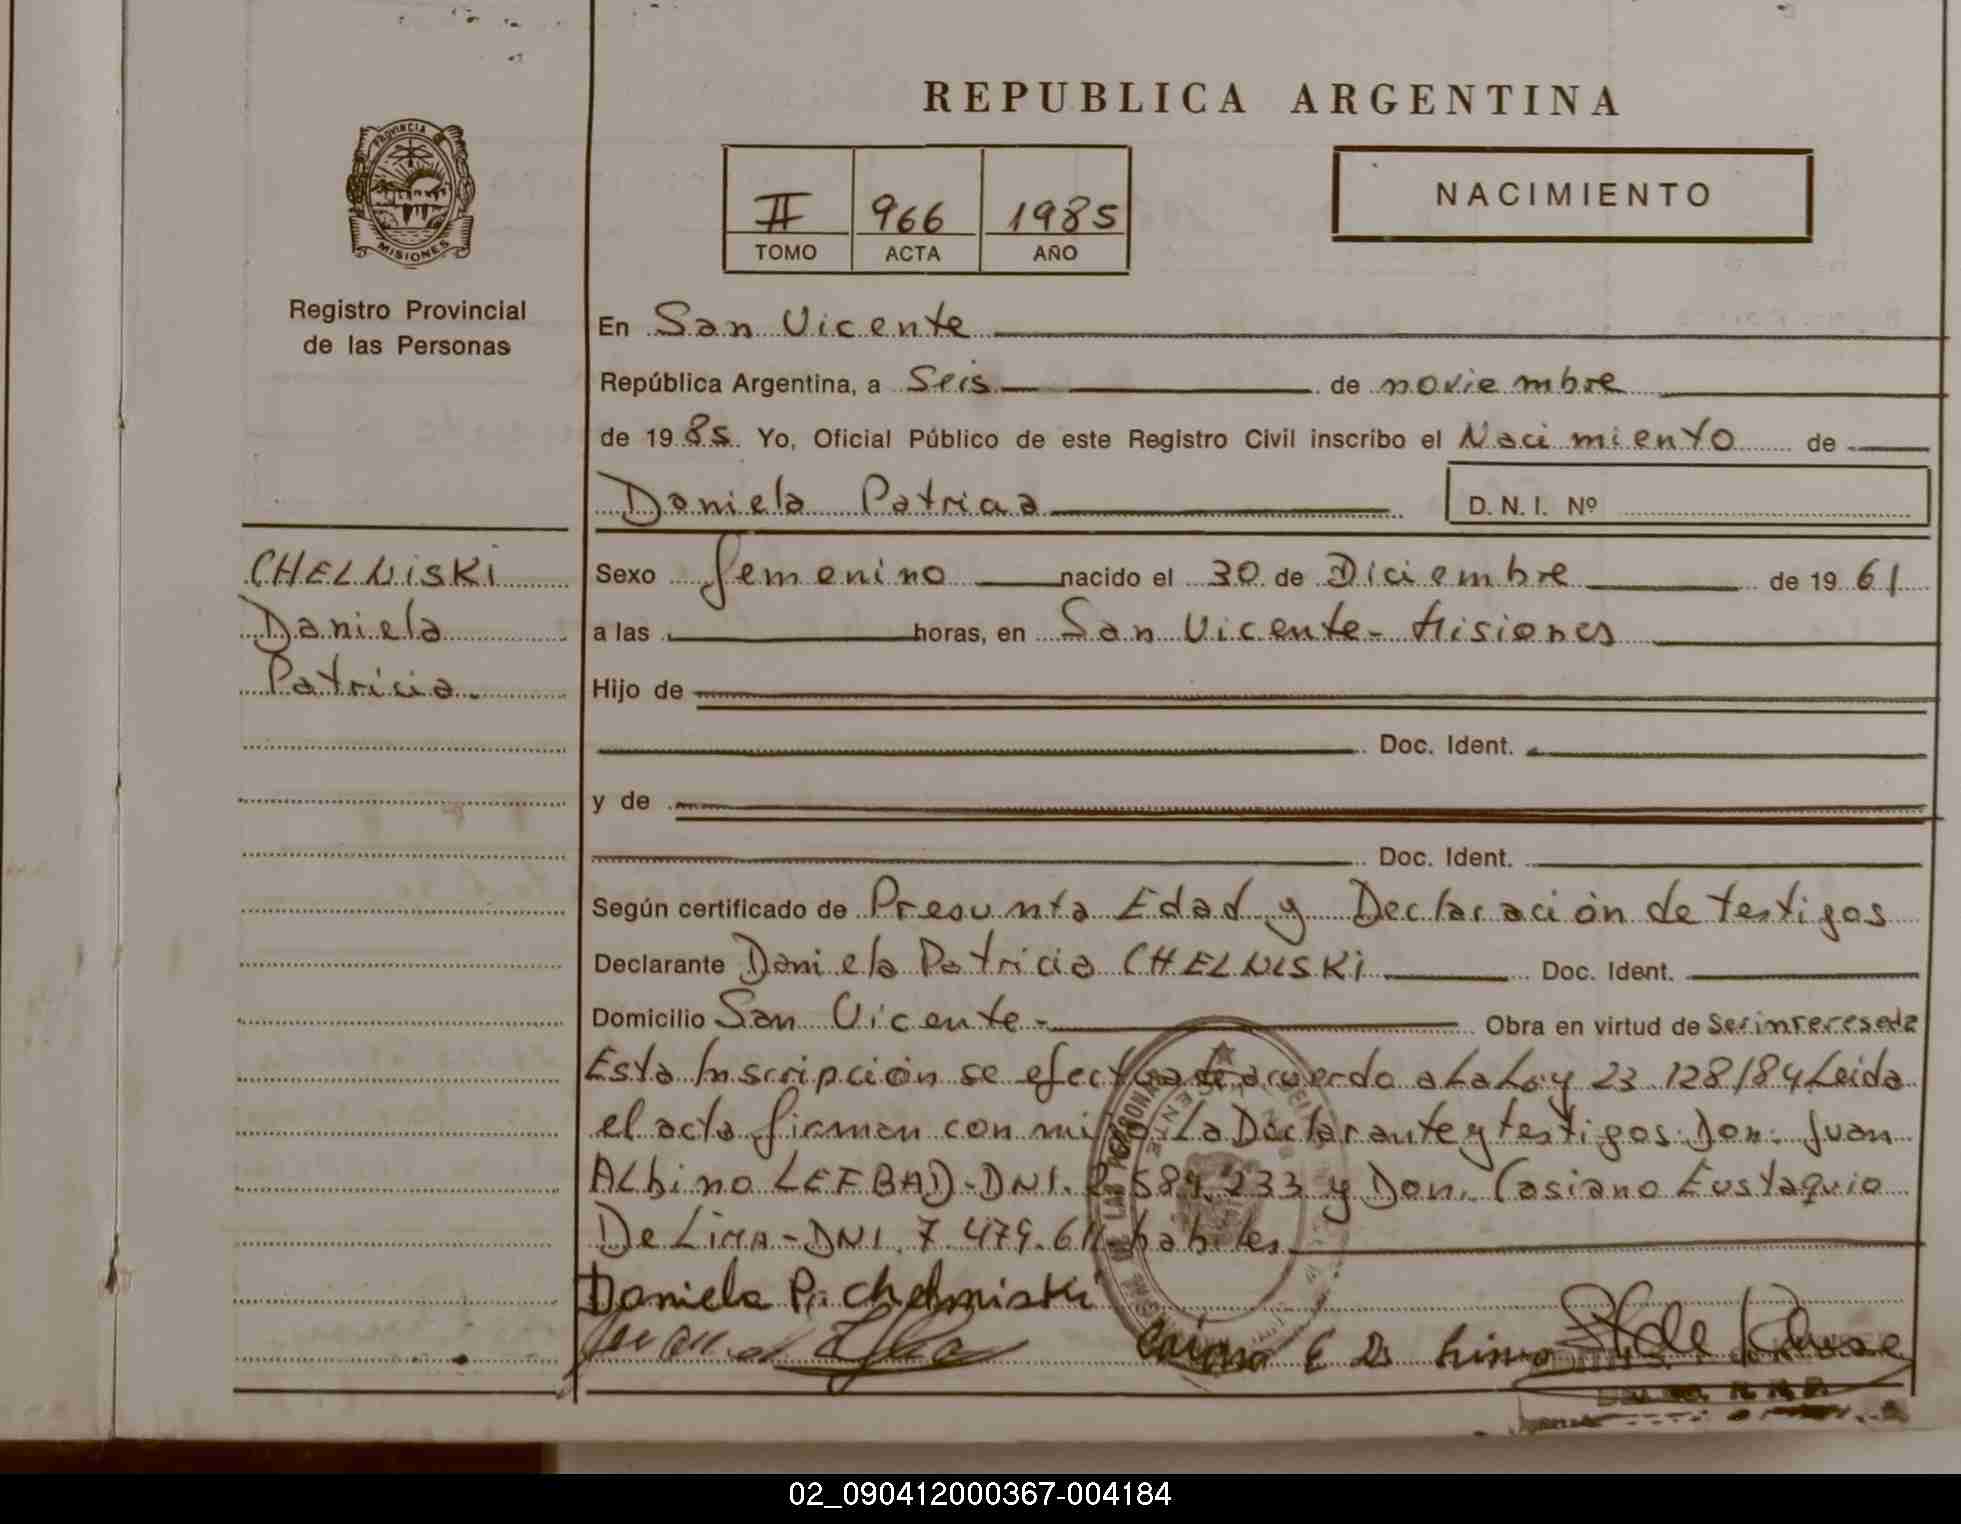 REPUBLICA ARGENTINA
PROVINCIA DE
MISIONES
Registro Provincial
de las Personas
II 966 1985
TOMO ACTA AÑO
NACIMIENTO
En San Vicente
República Argentina, a Seis de noviembre
de 1985 Yo, Oficial Público de este Registro Civil inscribo el Nacimiento de
Daniela Patricia D. N. I. Nº
CHELNISKI
Daniela
Patricia.
Sexo femenino nacido el 30 de Diciembre de 1961
a las horas, en San Vicente - Misiones
Hijo de
Doc. Ident.
y de
Doc. Ident.
Según certificado de Presunta Edad y Declaración de testigos
Declarante Daniela Patricia CHELNISKI Doc. Ident.
Domicilio San Vicente - Obra en virtud de Ser interesada
Esta Inscripción se efectua de acuerdo a La Ley 23 128/84 Leida
el acta firman con migo La Declarante y testigos Don: Juan
Albino LEFBAD - DNI. 584.233 y Don. Casiano Eustaquio
De LIMA - DNI. 7.479. habiles
Daniela P. Chelmiski
E De Lima
02_090412000367-004184